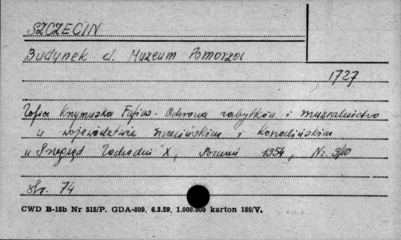 SZCZECIN
Budynek d. Muzeum Pomorza
1727
Zofia Krzymuska Fafius - Ochrona zabytków i muzealnictwo
w województwie szczecińskim i koszalińskim
w Przegląd Zachodni X, Poznań 1954, Nr. 9/10
Str. 74
CWD B-15b Nr 515/P. GDA-809. 6.3.59. 1.000.000 karton 180/V.